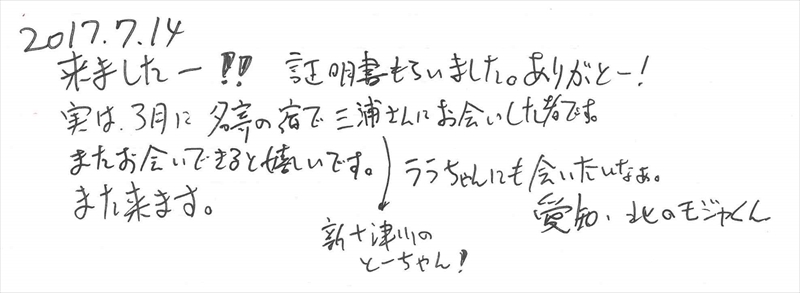 2017.7.14
来ましたー!! 証明書もらいました。ありがとー!
実は、3月に名寄の宿で三浦さんにお会いした者です。
またお会いできると嬉しいです。
ララちゃんにも会いたいなぁ。
また来ます。
愛知・北のモジャくん
新十津川の
とーちゃん!